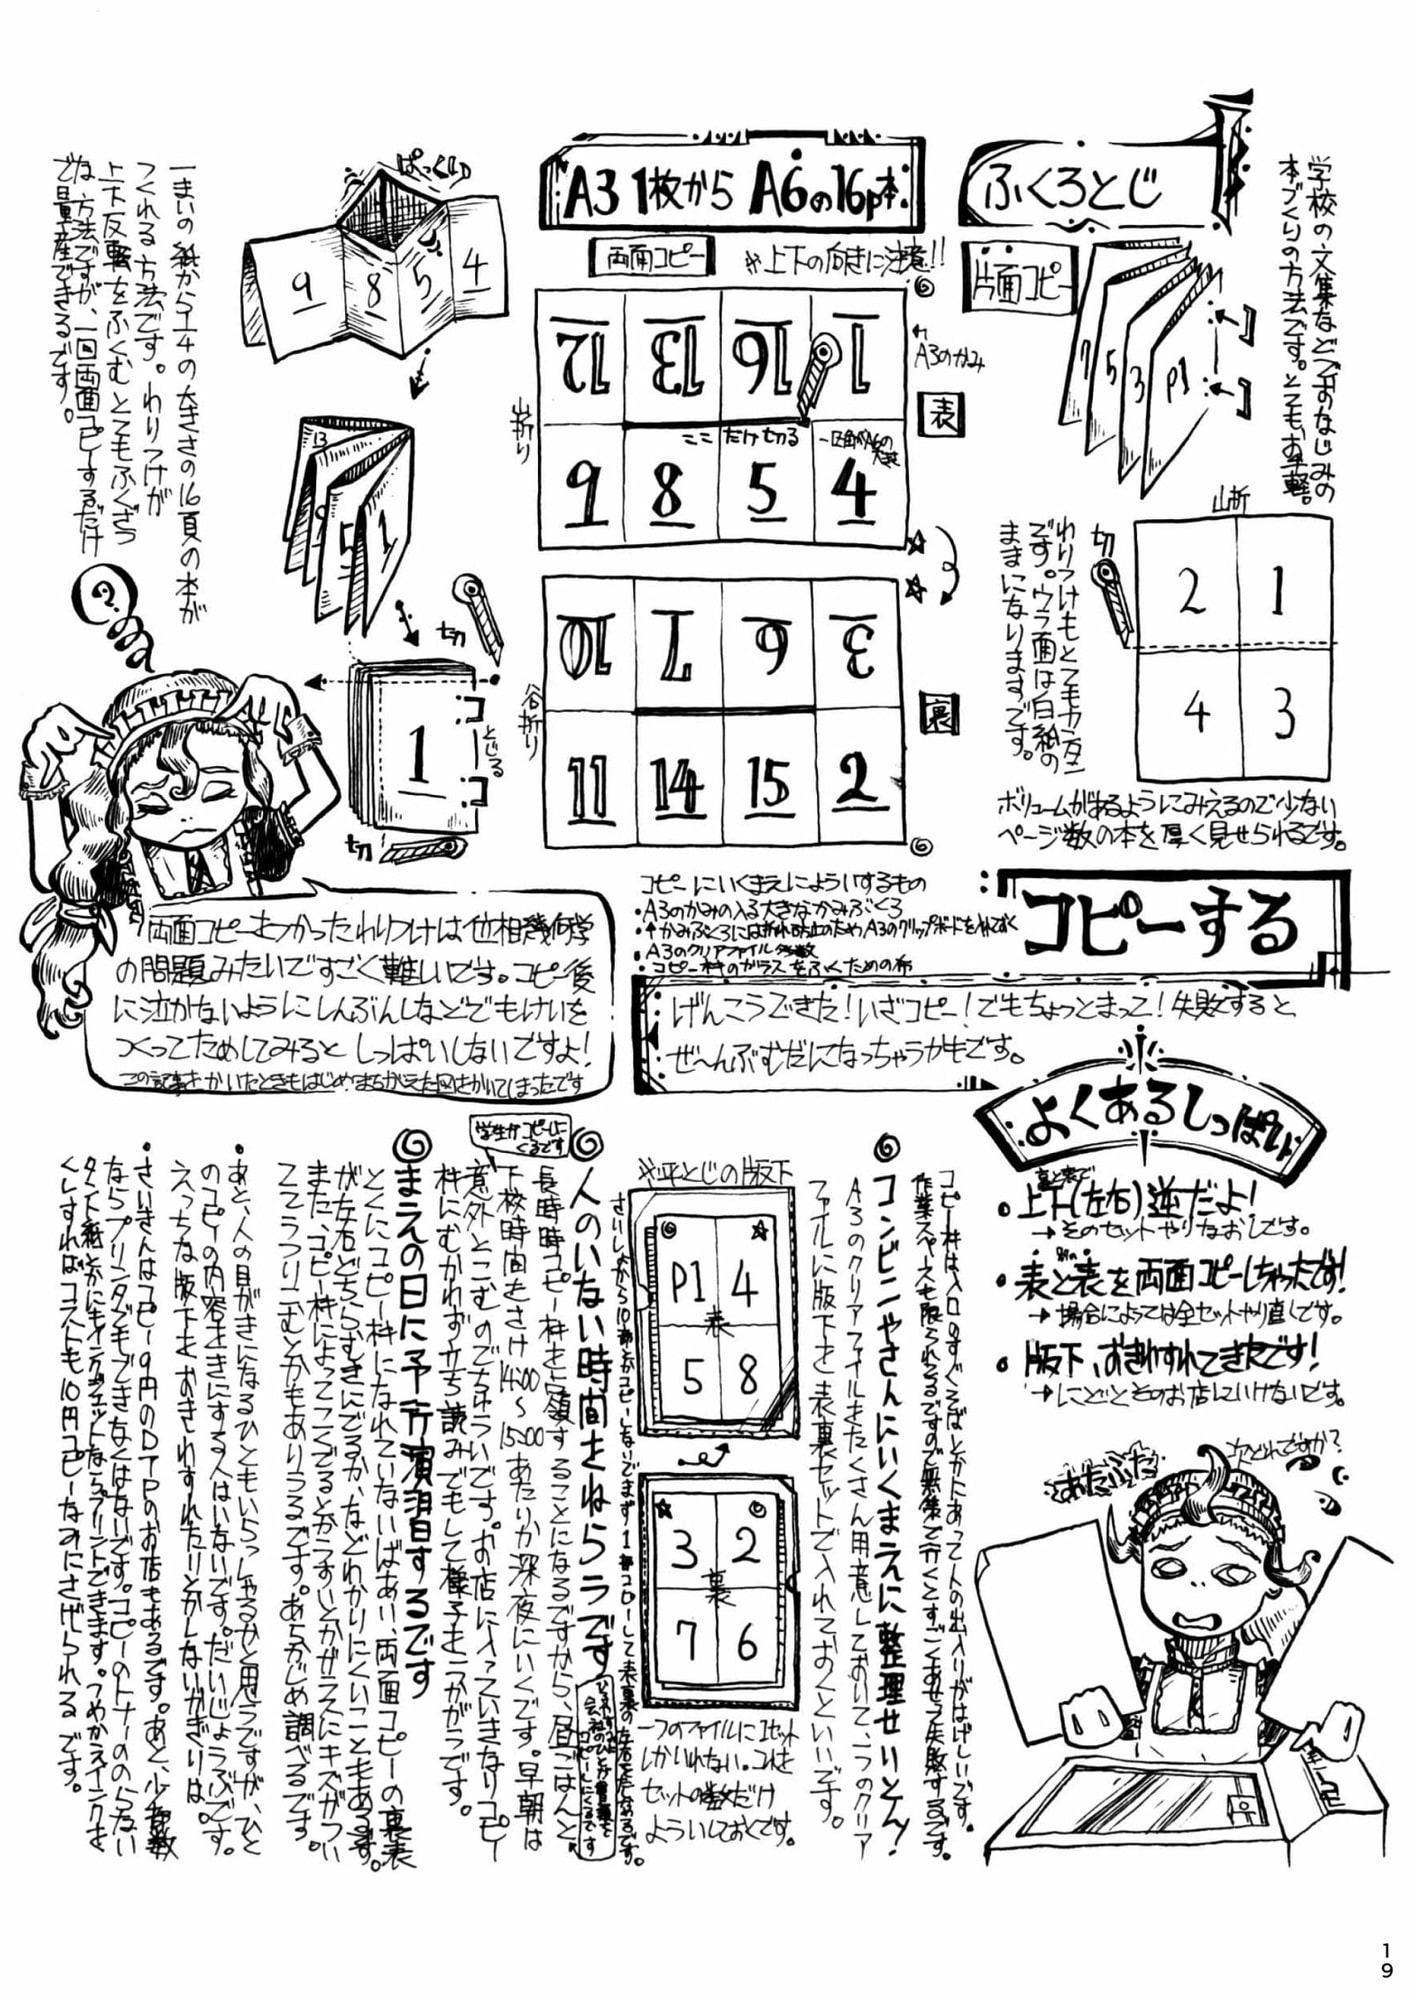 学校の文集などでおなじみの
本づくりの方法です。とてもお手軽。
ふくろとじ
片面コピー
7
5
3
P1
山折
わりつけもとてもカンタン
です。ウラ面は白紙の
ままになりますです。
切
2 1
4 3
ボリュームがあるようにみえるので少ない
ページ数の本を厚く見せられるです。
A3 1枚から A6の16p本
両面コピー
※上下の向きに注意!!
A3のかみ
表
12 13 16 1
ここだけ切る
一区角がA6の
大きさ
9 8 5 4
山折り
裏
10 7 6 3
11 14 15 2
谷折り
ぱっくり
9 8 5 4
13
9
5
1
切
1
とじる
切
一まいの紙から1/4の大きさの16頁の本が
つくれる方法です。わりつけが
上下反転をふくむとてもふくざつ
な方法ですが、一回両面コピーするだけ
で量産できるです。
?
両面コピーをつかったわりつけは位相幾何学
の問題みたいですごく難しいです。コピー後
に泣かないようにしんぶんしなどでもけいを
つくってためしてみると しっぱいしないですよ!
この記事をかいたときもはじめまちがえた図をかいてしまったです
コピーする
コピーにいくまえによういするもの
・A3のかみの入る大きなかみぶくろ
・↑かみぶくろには折れ防止のためA3のクリップボードを入れておく
・A3のクリアファイル多数
・コピー機のガラスをふくための布
げんこうできた!いざコピー!でもちょっとまって!失敗すると
ぜ〜んぶむだになっちゃうかもです。
よくあるしっぱい
裏と表で
・上下(左右)逆だよ!
→そのセットやりなおしです。
・表と表を両面コピーしちゃったです!
→場合によっては全セットやり直しです。
・版下、おきわすれてきたです!
→にどとそのお店にいけないです。
あたふた
次どれですか?
コンビニやさんにいくまえに整理せいとん!
コピー機は入口のすぐそばとかにあって人の出入りがはげしいです。
作業スペースも限られてるですので無策で行くとすごくあせって失敗するです。
A3のクリアファイルをたくさん用意しておいて、一つのクリア
ファイルに版下を表裏セットで入れておくといいです。
※平とじの版下
P1 4
表
5 8
3 2
裏
7 6
一つのファイルに1セット
しかいれない。これを
セットの数だけ
よういしておくです。
さいしょから10部とかコピーしないでまず1部コピーして表裏の左右をたしかめるです。
人のいない時間をねらうです
長時間コピー機を占領することになるですから、昼ごはんと
下校時間をさけ14:00〜15:00あたりか深夜にいくです。早朝は
意外とこむのでちゅういです。お店に入っていきなりコピー
機にむかわず立ち読みでもして様子をうかがうです。
学生がコピーしに
くるです
会社のひとが書類を
コピーしにくるです
まえの日に予行演習するです
とくにコピー機になれていないばあい、両面コピーの裏表
が左右どちらむきにでるか、などわかりにくいこともあるです。
また、コピー機によってこくでるとかうすいとかガラスにキズがつい
ててうつりこむとかもありうるです。あらかじめ調べるです。
・あと、人の目がきになるひともいらっしゃるかと思うですが、ひと
のコピーの内容をきにする人はいないです。だいじょうぶです。
えっちな版下をおきわすれたりとかしないかぎりは。
・さいきんはコピー9円のDTPのお店もあるです。あと、少部数
ならプリンタでもできなくはないです。コピーのトナーののらない
タント紙とかにもインクジェットならプリントできます。つめかえインクを
くしすればコストも10円コピーなみにさげられるです。
19